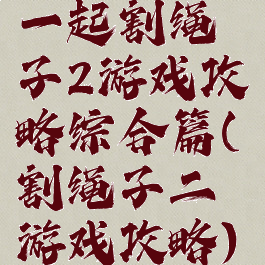 一起割绳
子2游戏攻
略综合篇(
割绳子二
游戏攻略)